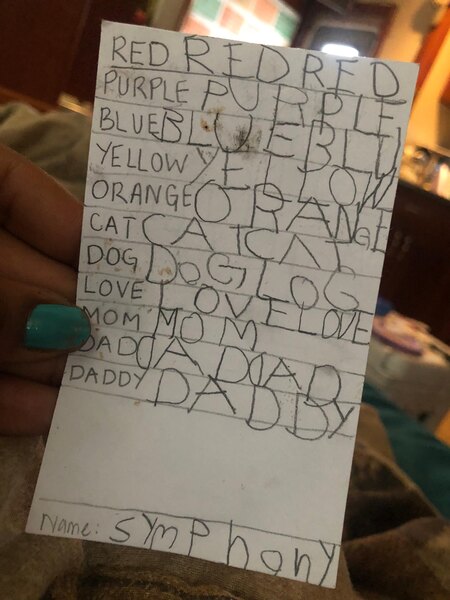 RED RED RED
PURPLE PURPLE
BLUE BLUE BLU
YELLOW YELLOW
ORANGE ORANGE
CAT CAT CAT
DOG DOG LOG
LOVE LOVE LOVE
MOM MOM
DAD DAD DAD
DADDY DADDY
Name: SymPhony